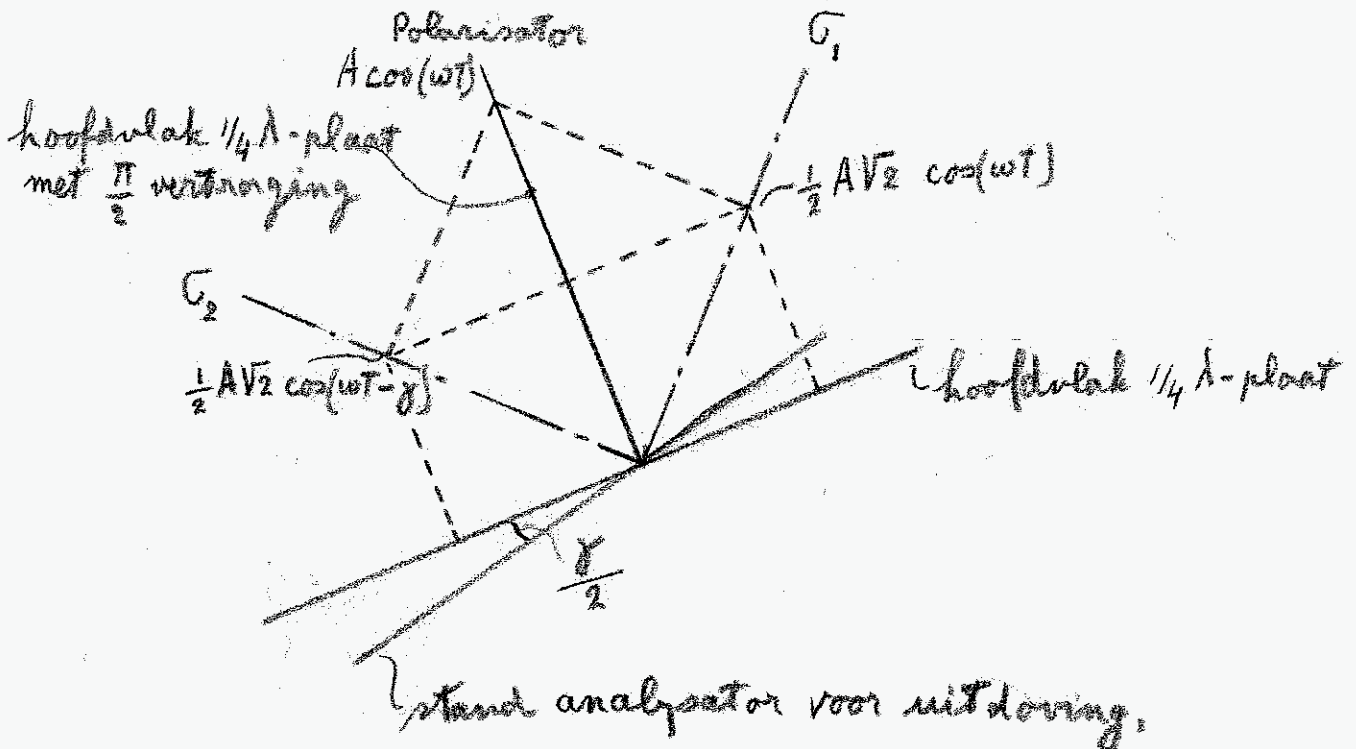 Polarisator
A cos(ωT)
σ₁
hoofdvlak 1/4 λ-plaat
met π/2 vertraging
½ A√2 cos(ωT)
σ₂
½ A√2 cos(ωT-γ)
hoofdvlak 1/4 λ-plaat
γ/2
stand analysator voor uitdoving.